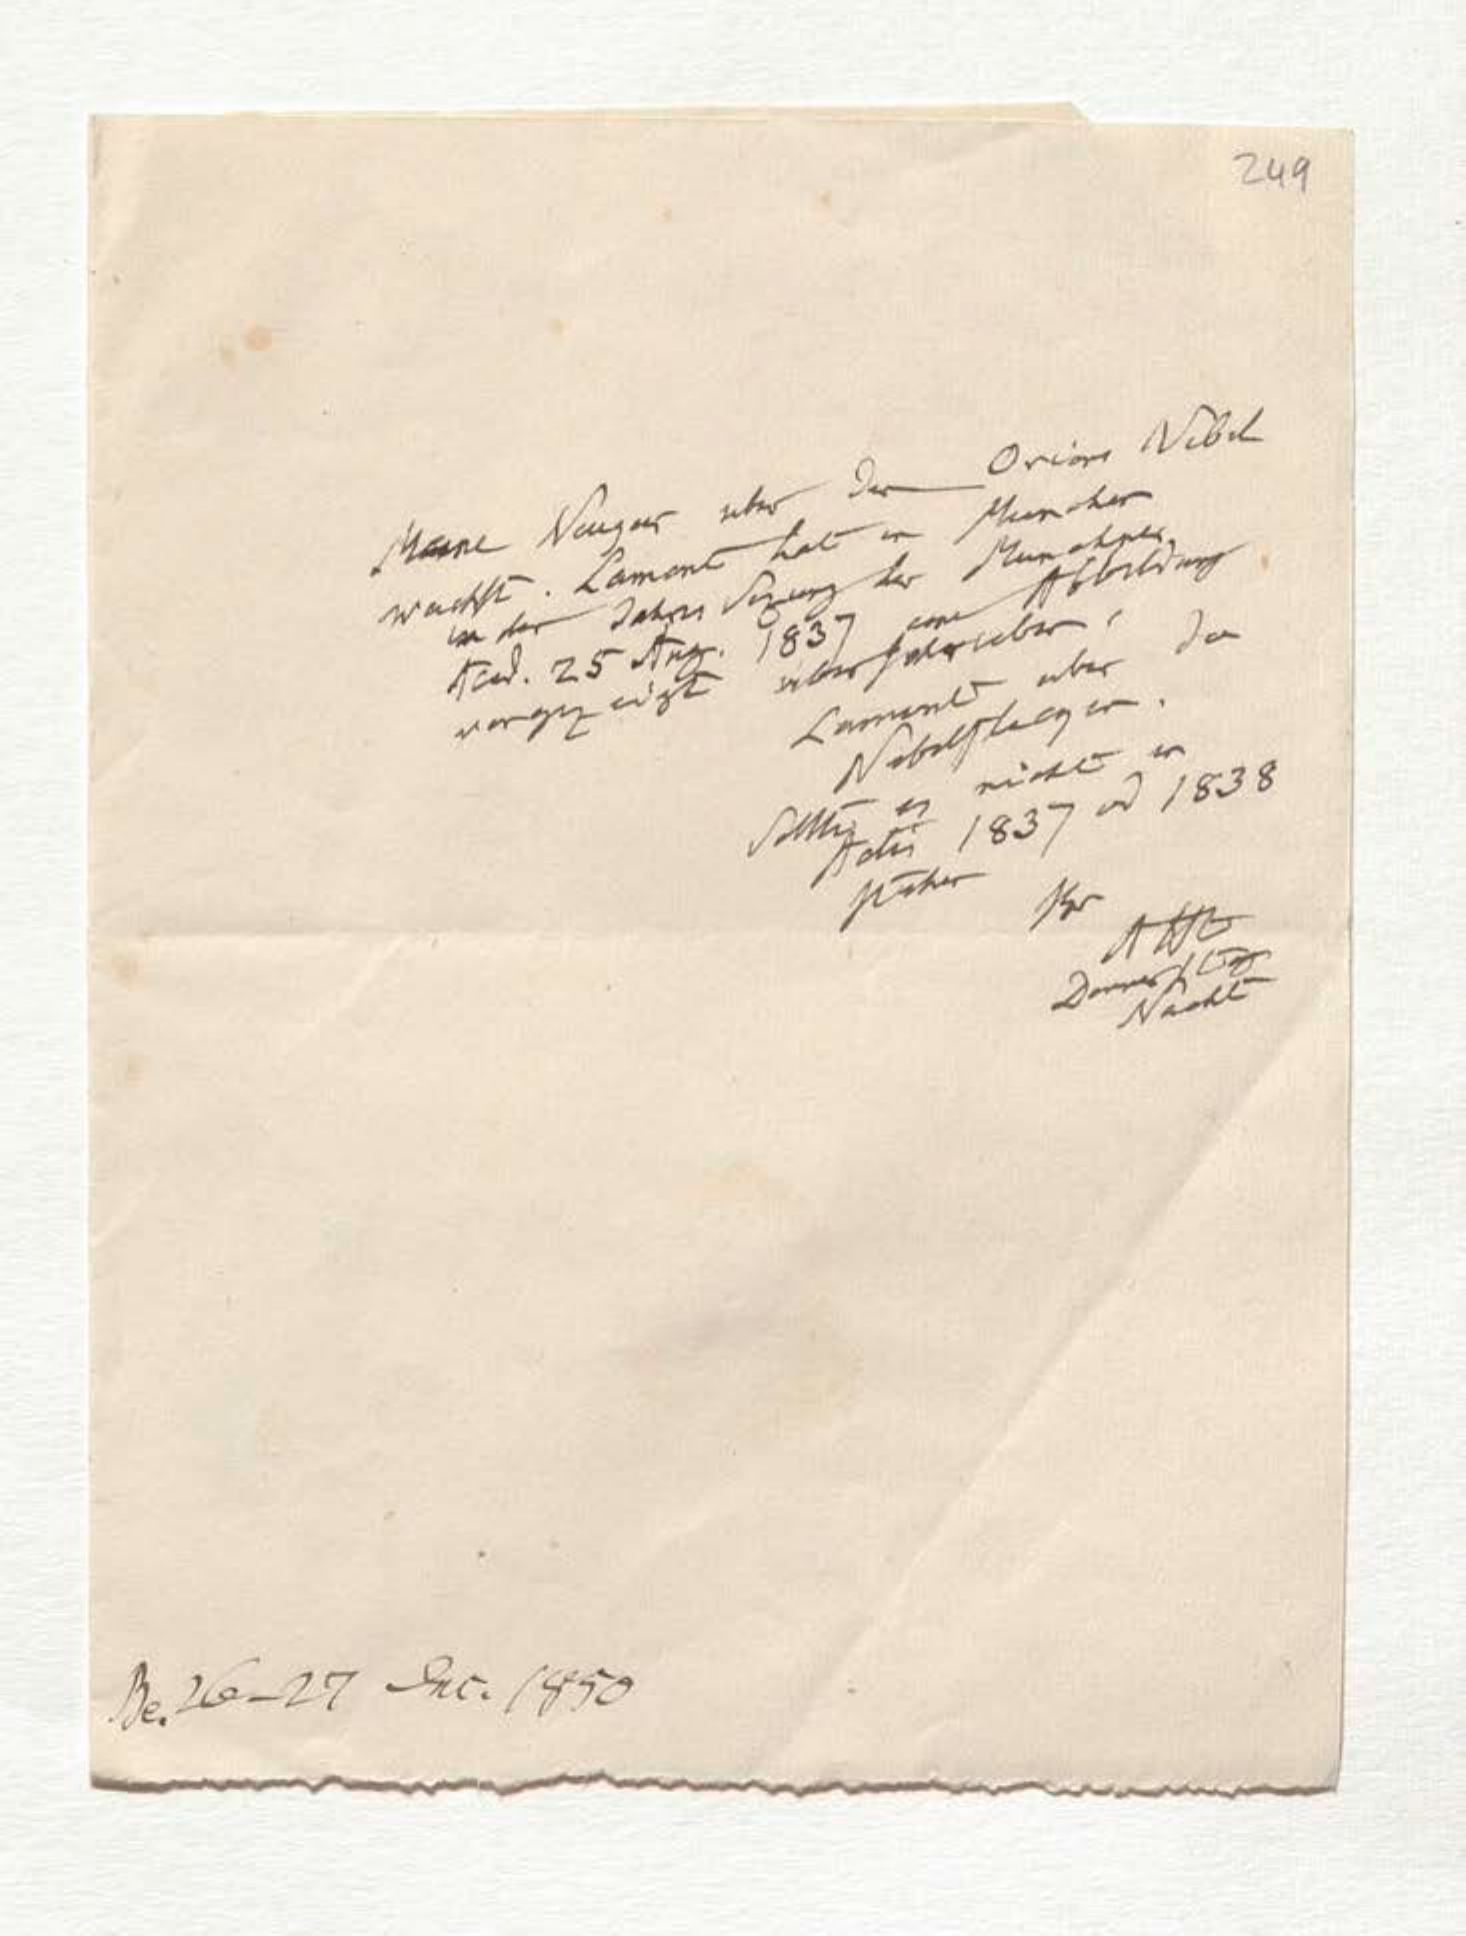 249
Meine Neugier uber den Orions Nebel
wächst. Lamont hat in München
in der Jahres Sizung der Münchner
Acad. 25 Aug. 1837 eine Abbildung
vorgezeigt uberschrieben:
Lamont uber die
Nebelflecken.
Sollte es nicht in
Actis 1837 od 1838
stehen
Ihr
AHt
Donnerstag
Nacht
Be. 26–27 Dec. 1850